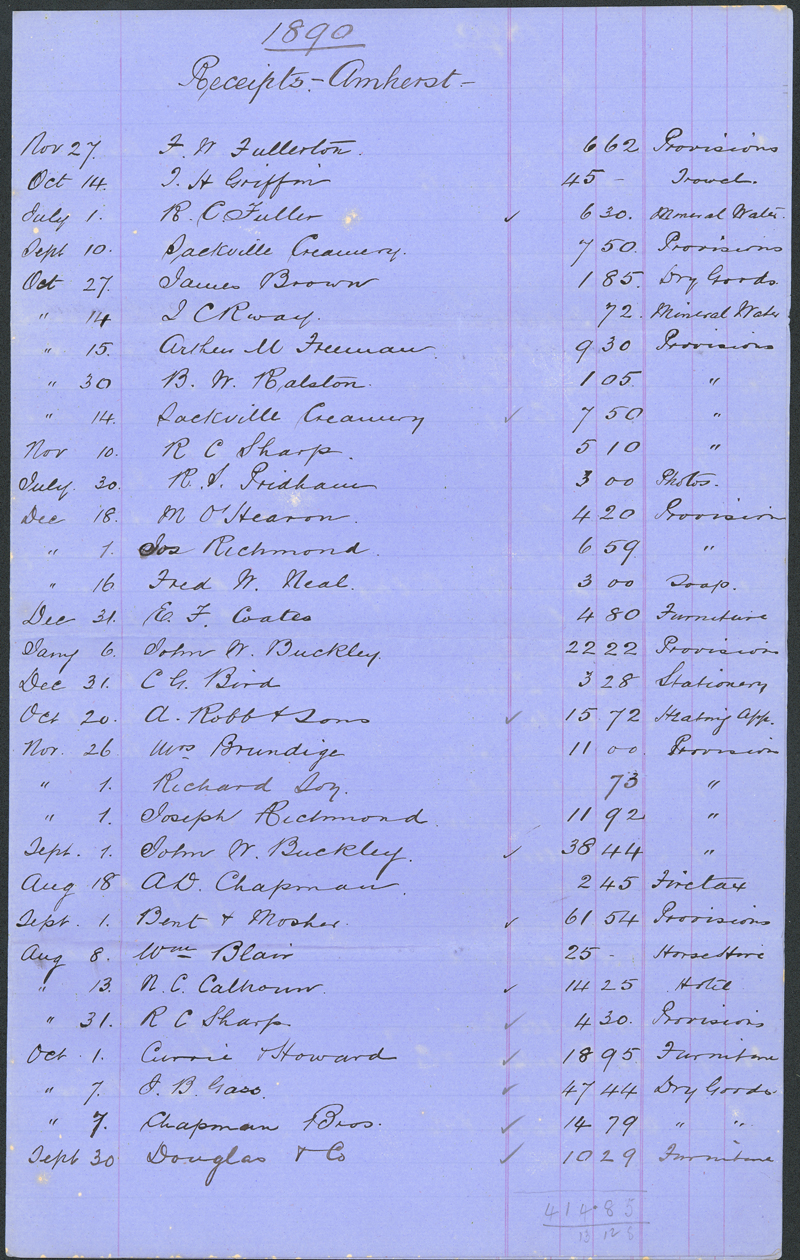 1890
Receipts.- Amherst -
Nov 27. F. W. Fullerton. 6 62 Provisions
Oct 14. J. H Griffin 45 - Travel.
July 1. R. C. Fuller ✓ 6 30. Mineral Water.
Sept 10. Sackville Creamery. 7 50. Provisions
Oct 27. James Brown 1 85. Dry Goods.
" 14 72. Mineral Water
" 15. Arthur M Freeman. 9 30 Provisions
" 30 B. W. Ralston. 1 05. "
" 14. Sackville Creamery ✓ 7 50 "
Nov 10. R C Sharp. 5 10 "
July. 30. R. S. Pridham 3 00 Photos.
Dec 18. M O'Hearon. 4 20 Provision
" 1. Jos Richmond. 6 59 "
" 16 Fred W. Neal. 3 00 Soap.
Dec 31. E. F. Coates 4 80 Furniture
Jany 6. John W. Buckley. 22 22 Provision
Dec 31. C G. Bird 3 28 Stationery
Oct 20. A. Robb & Sons ✓ 15 72 Heating App.
Nov. 26 Mrs Brundige 11 00. Provision
" 1. Richard Joy. 73 "
" 1. Joseph Richmond. 11 92 "
Sept. 1. John W. Buckley. ✓ 38 44 "
Aug 18. A.D. Chapman. 2 45 Firetax
Sept. 1. Bent & Mosher. ✓ 61 54 Provisions
Aug 8. Wm Blair 25 - Horse Hire
" 13. N. C. Calhoun. ✓ 14 25 Hotel
" 31. R C Sharp. ✓ 4 30. Provisions
Oct 1. Currie & Howard ✓ 18 95 Furniture
" 7. J. B. Gass. ✓ 47 44 Dry Goods.
" 7. Chapman Bros. ✓ 14 79 " "
Sept 30 Douglas & Co ✓ 10 29 Furniture
414.85
13 12 8